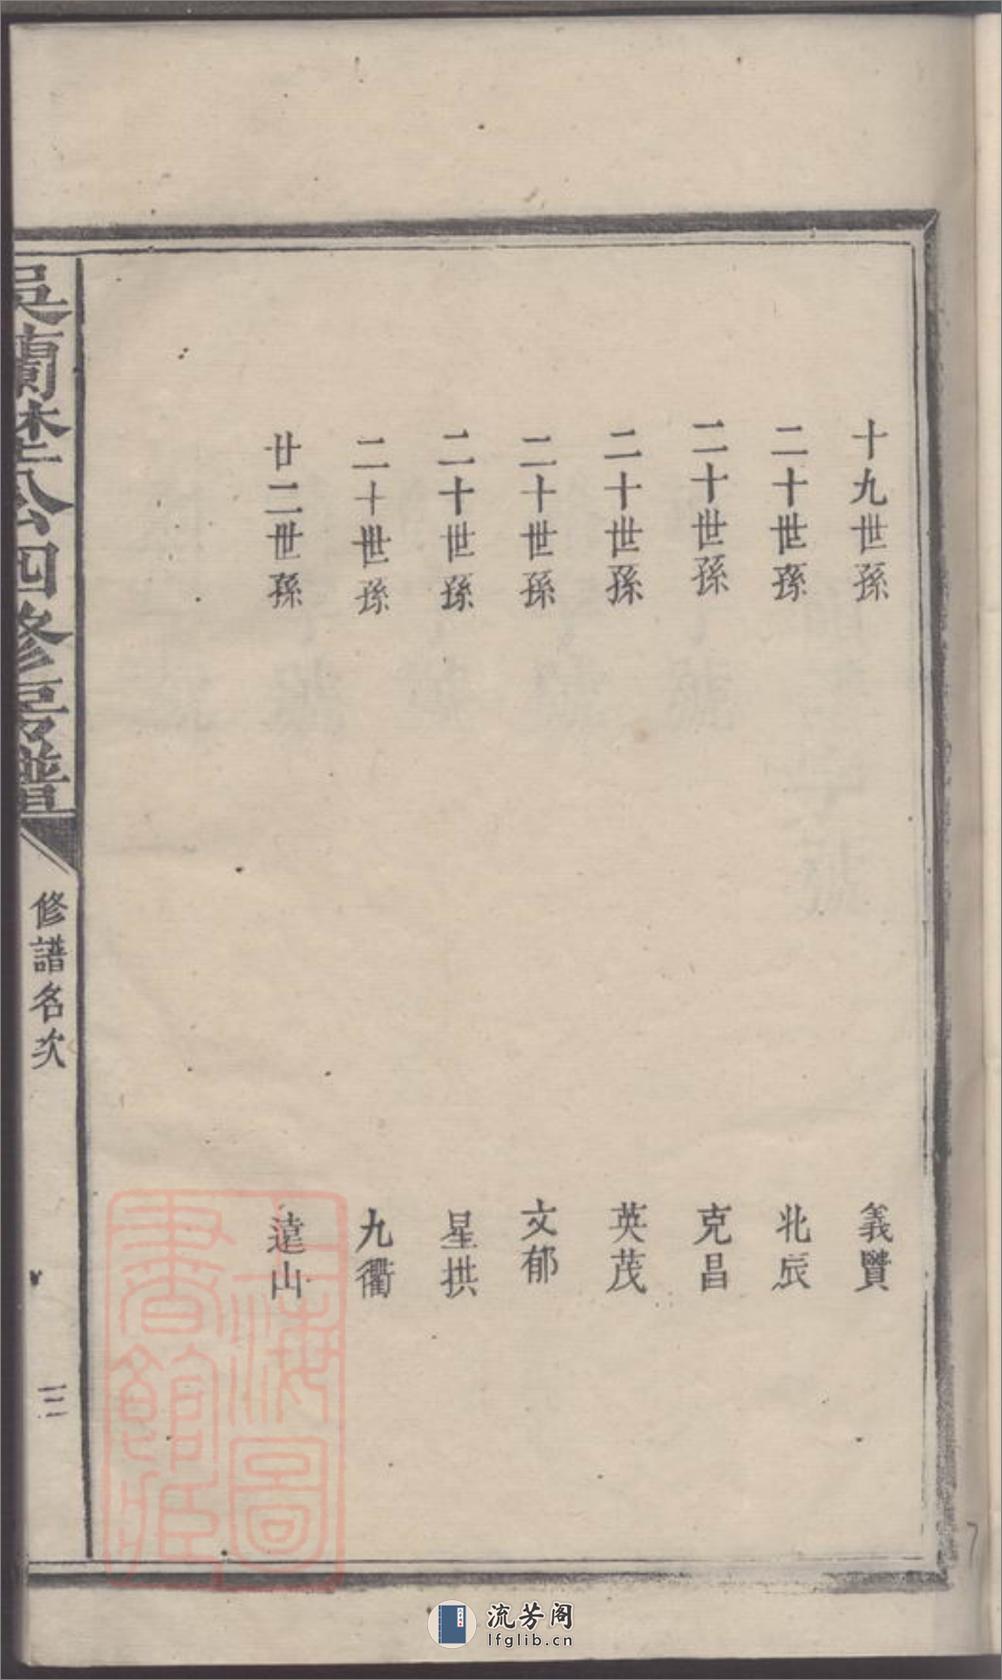 十九世孫 義贒
二十世孫 北辰
二十世孫 克昌
二十世孫 英茂
二十世孫 文郁
二十世孫 星拱
二十世孫 九衢
廿二世孫 遠山
吳蘭楚公四修房譜
修譜名次
三
上海圖書館藏
流芳阁
lfglib.cn
7